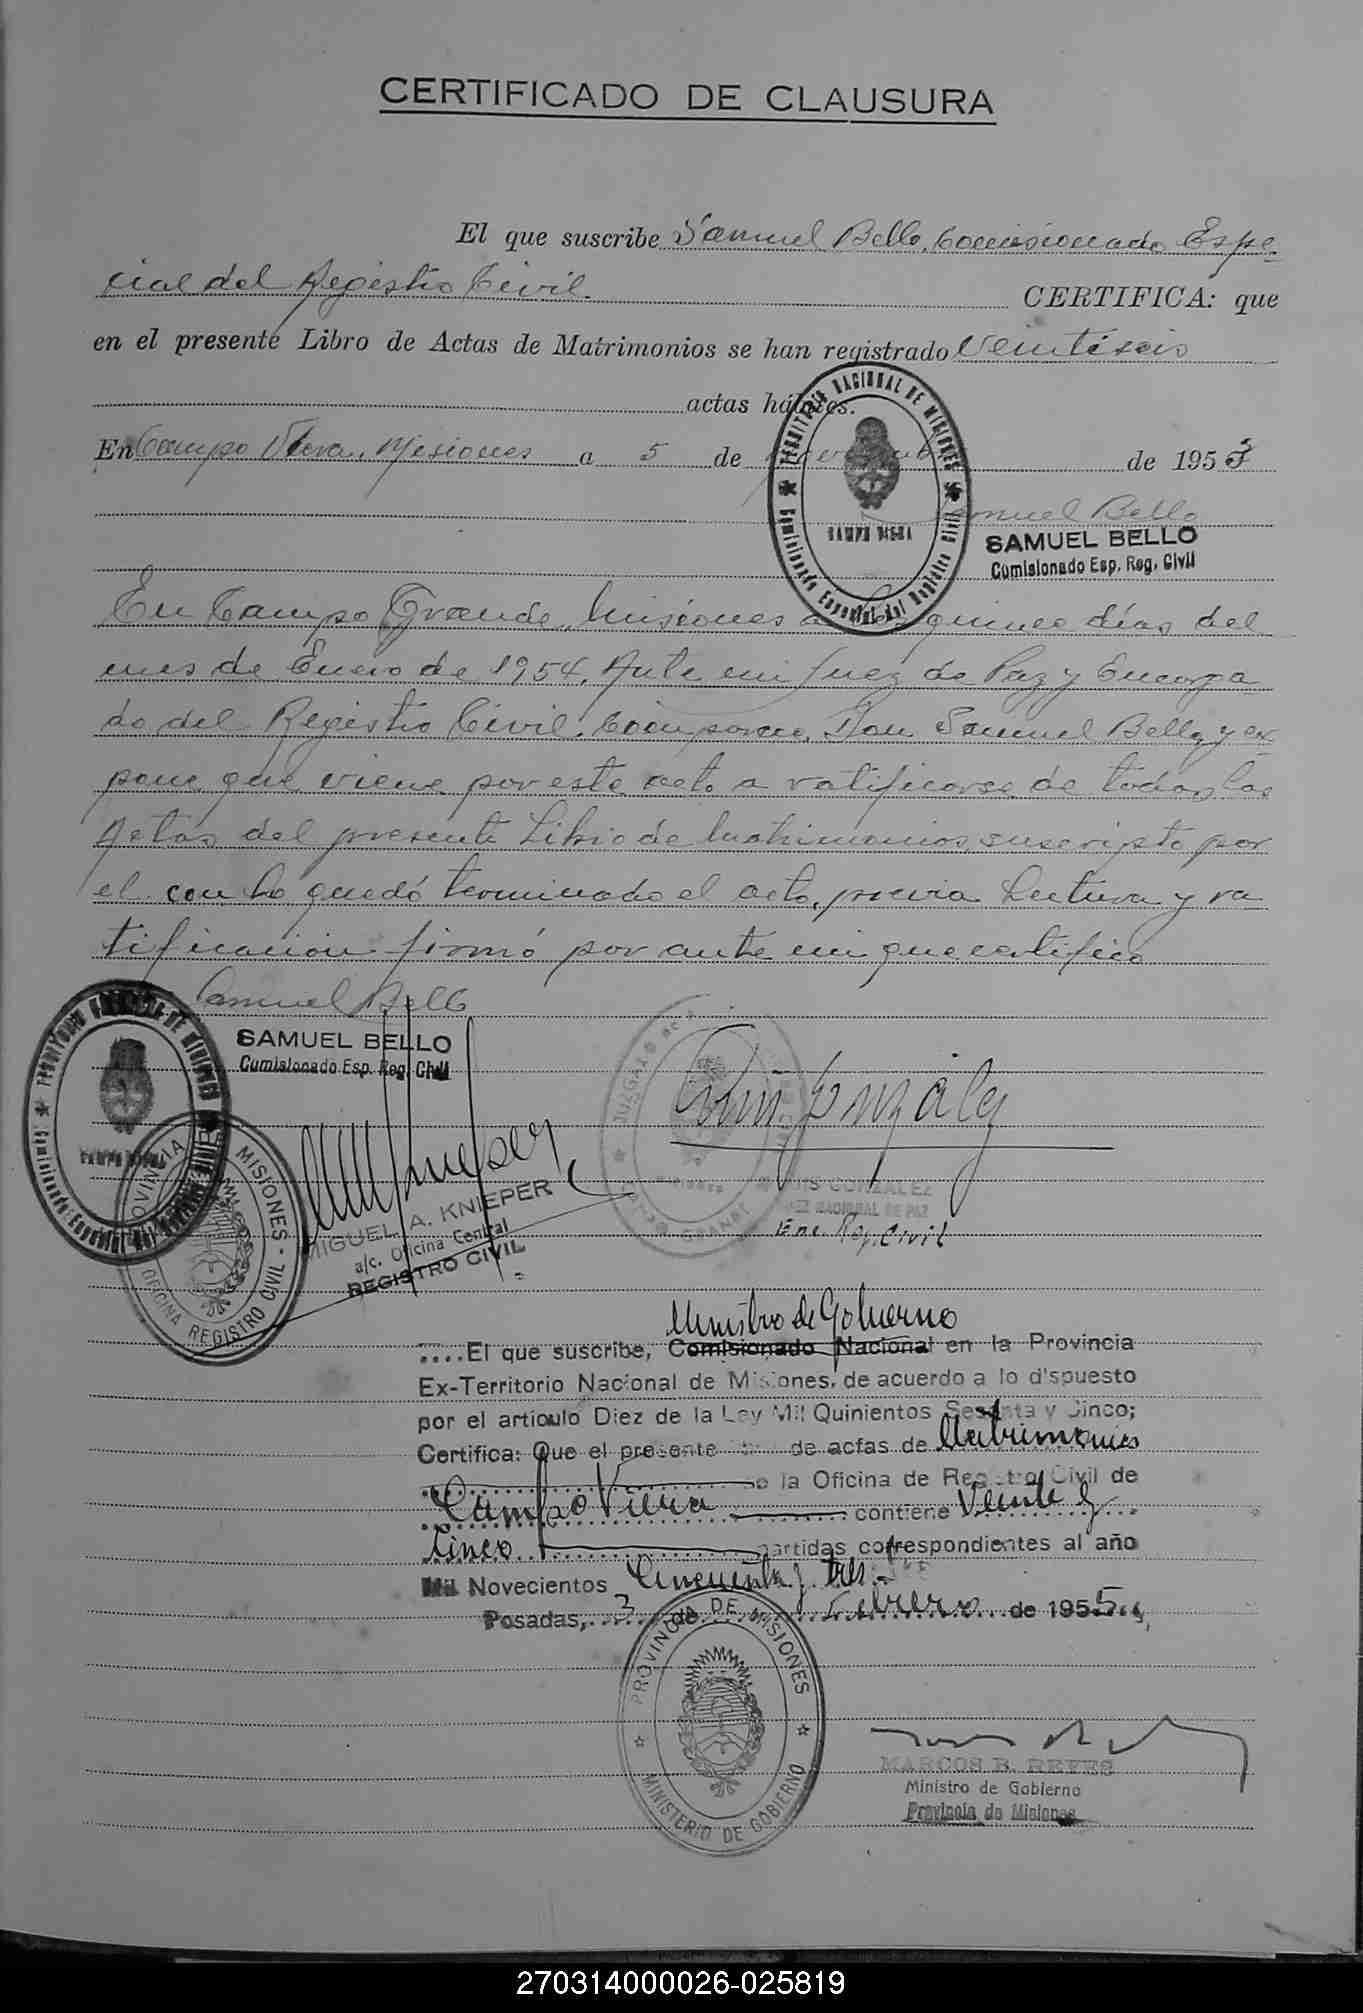 CERTIFICADO DE CLAUSURA
El que suscribe Samuel Bello, Comisionado Espe-
cial del Registro Civil. CERTIFICA: que
en el presente Libro de Actas de Matrimonios se han registrado Veintiseis
actas hábiles.
En Campo Viera, Misiones a 5 de de 1953
TERRITORIO NACIONAL DE MISIONES
CAMPO VIERA
Comisionado Especial del Registro Civil
Samuel Bello
SAMUEL BELLO
Comisionado Esp. Reg. Civil
En Campo Grande, Misiones a los quince días del
mes de Enero de 1954, Ante mi Juez de Paz y Encarga
do del Registro Civil, Comparece Don Samuel Bello, y ex-
pone que viene por este acto a ratificarse de todas las
Actas del presente Libro de Matrimonios suscripto por
el con lo quedó terminado el acto, previa Lectura y ra
tificación firmó por ante mi que certifico
Samuel Bello
SAMUEL BELLO
Comisionado Esp. Reg. Civil
TERRITORIO NACIONAL DE MISIONES
CAMPO VIERA
Comisionado Especial del Registro Civil
PROVINCIA MISIONES
OFICINA REGISTRO CIVIL
MIGUEL A. KNIEPER
a/c. Oficina Central
REGISTRO CIVIL
JUZGADO DE
CAMPO GRANDE
Luis Gonzalez
LUIS GONZALEZ
JUEZ NACIONAL DE PAZ
Enc Reg. Civil
Ministro de Gobierno
....El que suscribe, Comisionado Nacional en la Provincia
Ex-Territorio Nacional de Misiones, de acuerdo a lo dispuesto
por el artículo Diez de la Ley Mil Quinientos Sesenta y Cinco;
Certifica: Que el presente de actas de Matrimonios
de la Oficina de Registro Civil de
Campo Viera contiene Veinte y
Cinco partidas correspondientes al año
Mil Novecientos Cincuenta y tres.-
Posadas, 3 de Febrero de 1955
PROVINCIA DE MISIONES
MINISTERIO DE GOBIERNO
MARCOS B. REYES
Ministro de Gobierno
Provincia de Misiones
270314000026-025819